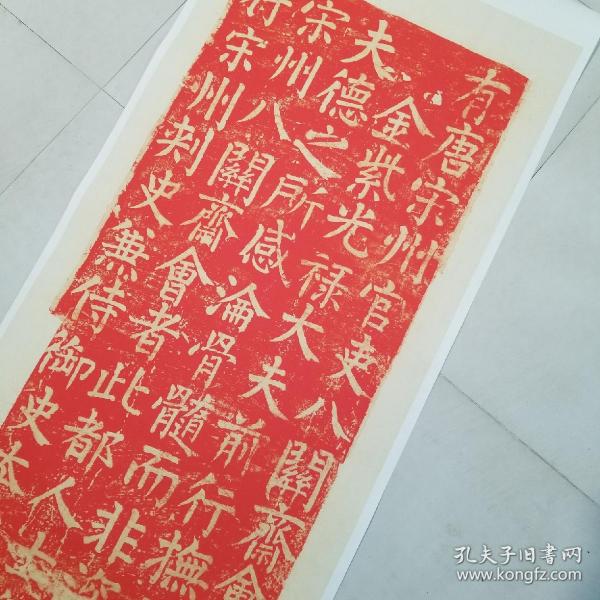 有唐宋州官吏八關齋會
金紫光禄大夫前行撫
夫德之所感淪骨髓而非
宋州八關齋會者此都人
行宋州刺史兼侍御史本
孔夫子旧书网
www.kongfz.com